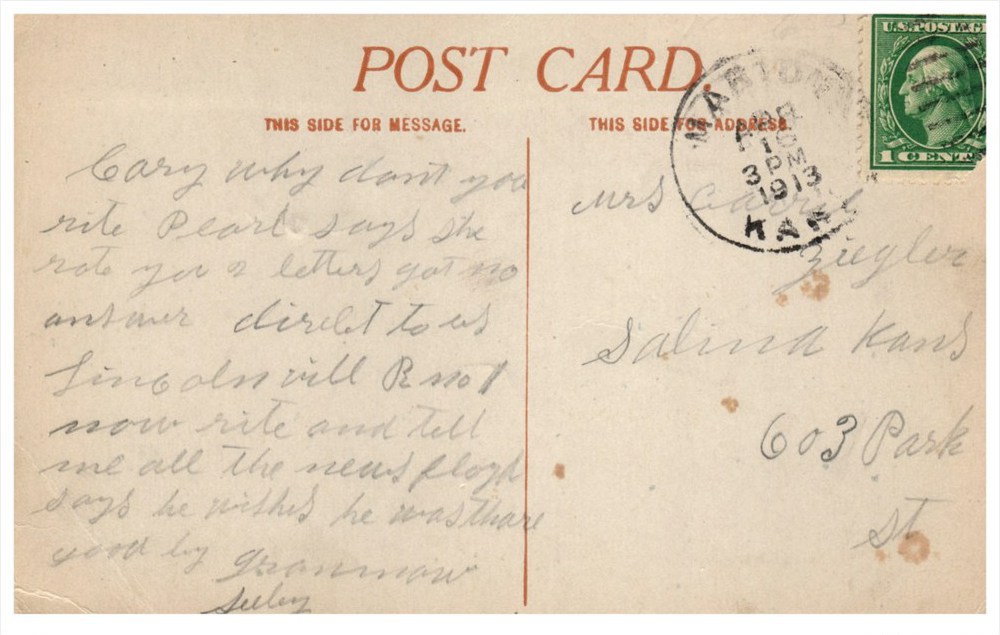 POST CARD.
THIS SIDE FOR MESSAGE.
THIS SIDE FOR ADDRESS.
U.S. POSTAGE
1 CENT
MARION
APR
10
3 PM
1913
KANS
Cary why dont you
rite Pearl says she
rote you 2 letters got no
answer direct to us
Lincolnvill R no 1
now rite and tell
me all the news floyd
says he wishes he was thare
good by granmow
Seeley
Mrs Carrie
Ziegler
Salina Kans
603 Park
St